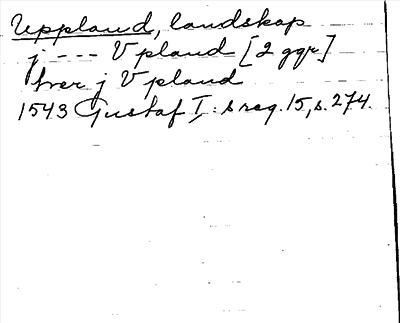 Uppland, landskap
j --- Vpland [2 ggr]
hver j Vpland
1543 Gustaf I:s reg. 15, s. 274.